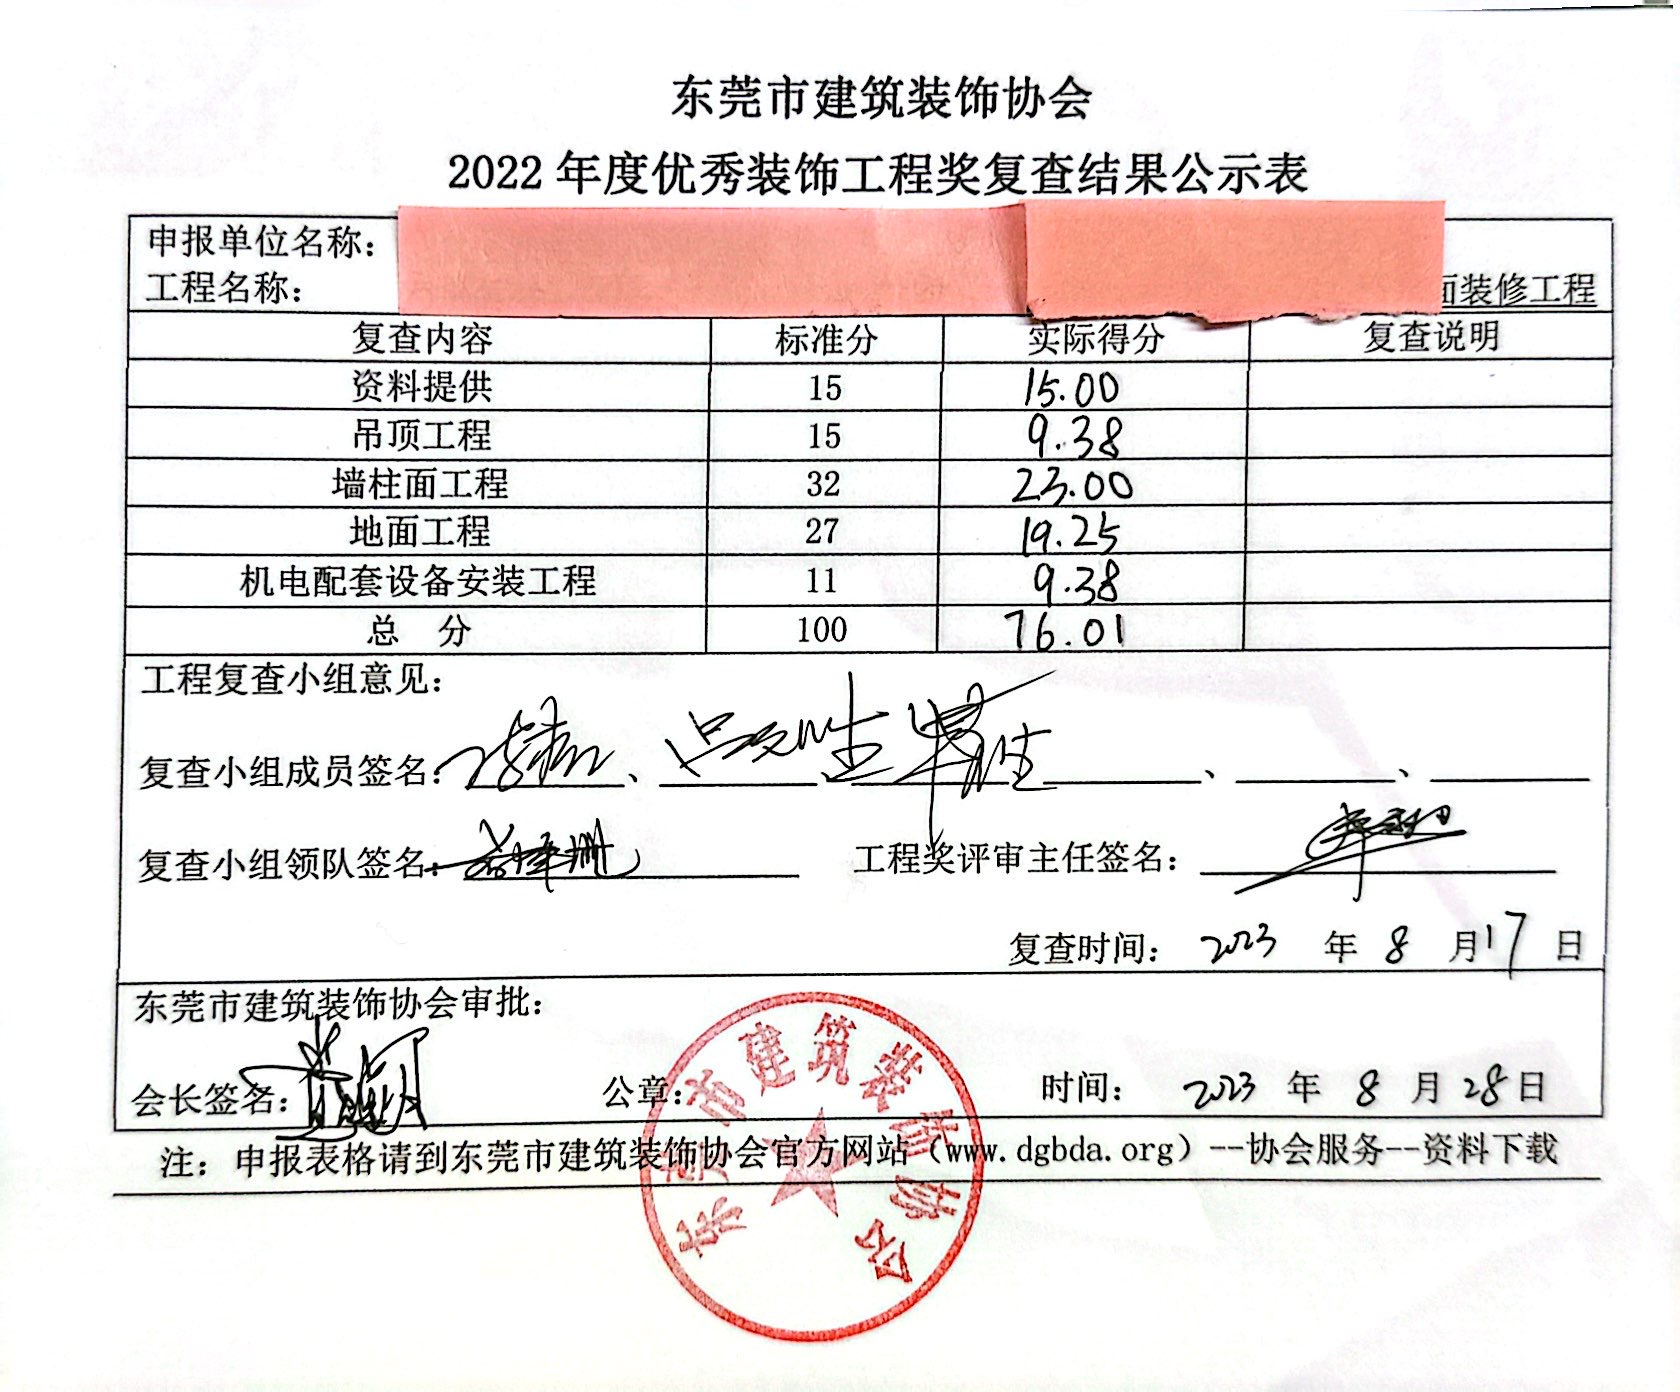 东莞市建筑装饰协会
2022年度优秀装饰工程奖复查结果公示表
申报单位名称：
工程名称： 面装修工程
复查内容 标准分 实际得分 复查说明
资料提供 15 15.00
吊顶工程 15 9.38
墙柱面工程 32 23.00
地面工程 27 19.25
机电配套设备安装工程 11 9.38
总 分 100 76.01
工程复查小组意见：
复查小组成员签名： 、 、 、 、
复查小组领队签名： 工程奖评审主任签名：
复查时间： 2023 年 8 月 17 日
东莞市建筑装饰协会审批：
会长签名： 公章： 时间： 2023 年 8 月 28 日
东莞市建筑装饰协会
注：申报表格请到东莞市建筑装饰协会官方网站（www.dgbda.org）--协会服务--资料下载